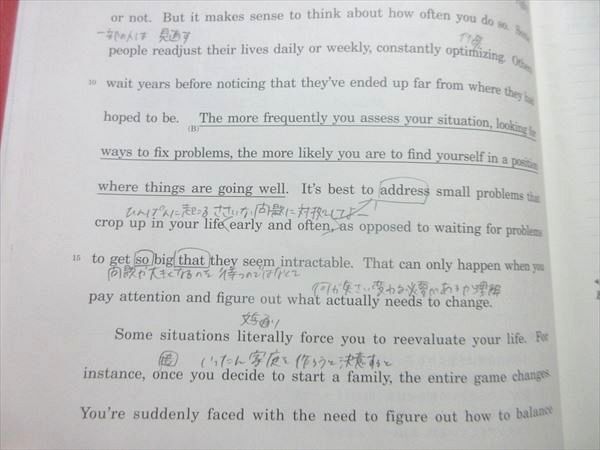 or not. But it makes sense to think about how often you do so. Some
一部の人は 見直す
people readjust their lives daily or weekly, constantly optimizing. Others
10 wait years before noticing that they've ended up far from where they had
hoped to be. The more frequently you assess your situation, looking for
(B)
ways to fix problems, the more likely you are to find yourself in a position
where things are going well. It's best to address small problems that
ひんぱんに起こるささいな問題に対校して
crop up in your life early and often, as opposed to waiting for problems
15 to get so big that they seem intractable. That can only happen when you
問題が大きくなるのを待つのではなくて
pay attention and figure out what actually needs to change.
文字通り
Some situations literally force you to reevaluate your life. For
いったん家庭を作ろうと決意すると
instance, once you decide to start a family, the entire game changes.
You're suddenly faced with the need to figure out how to balance